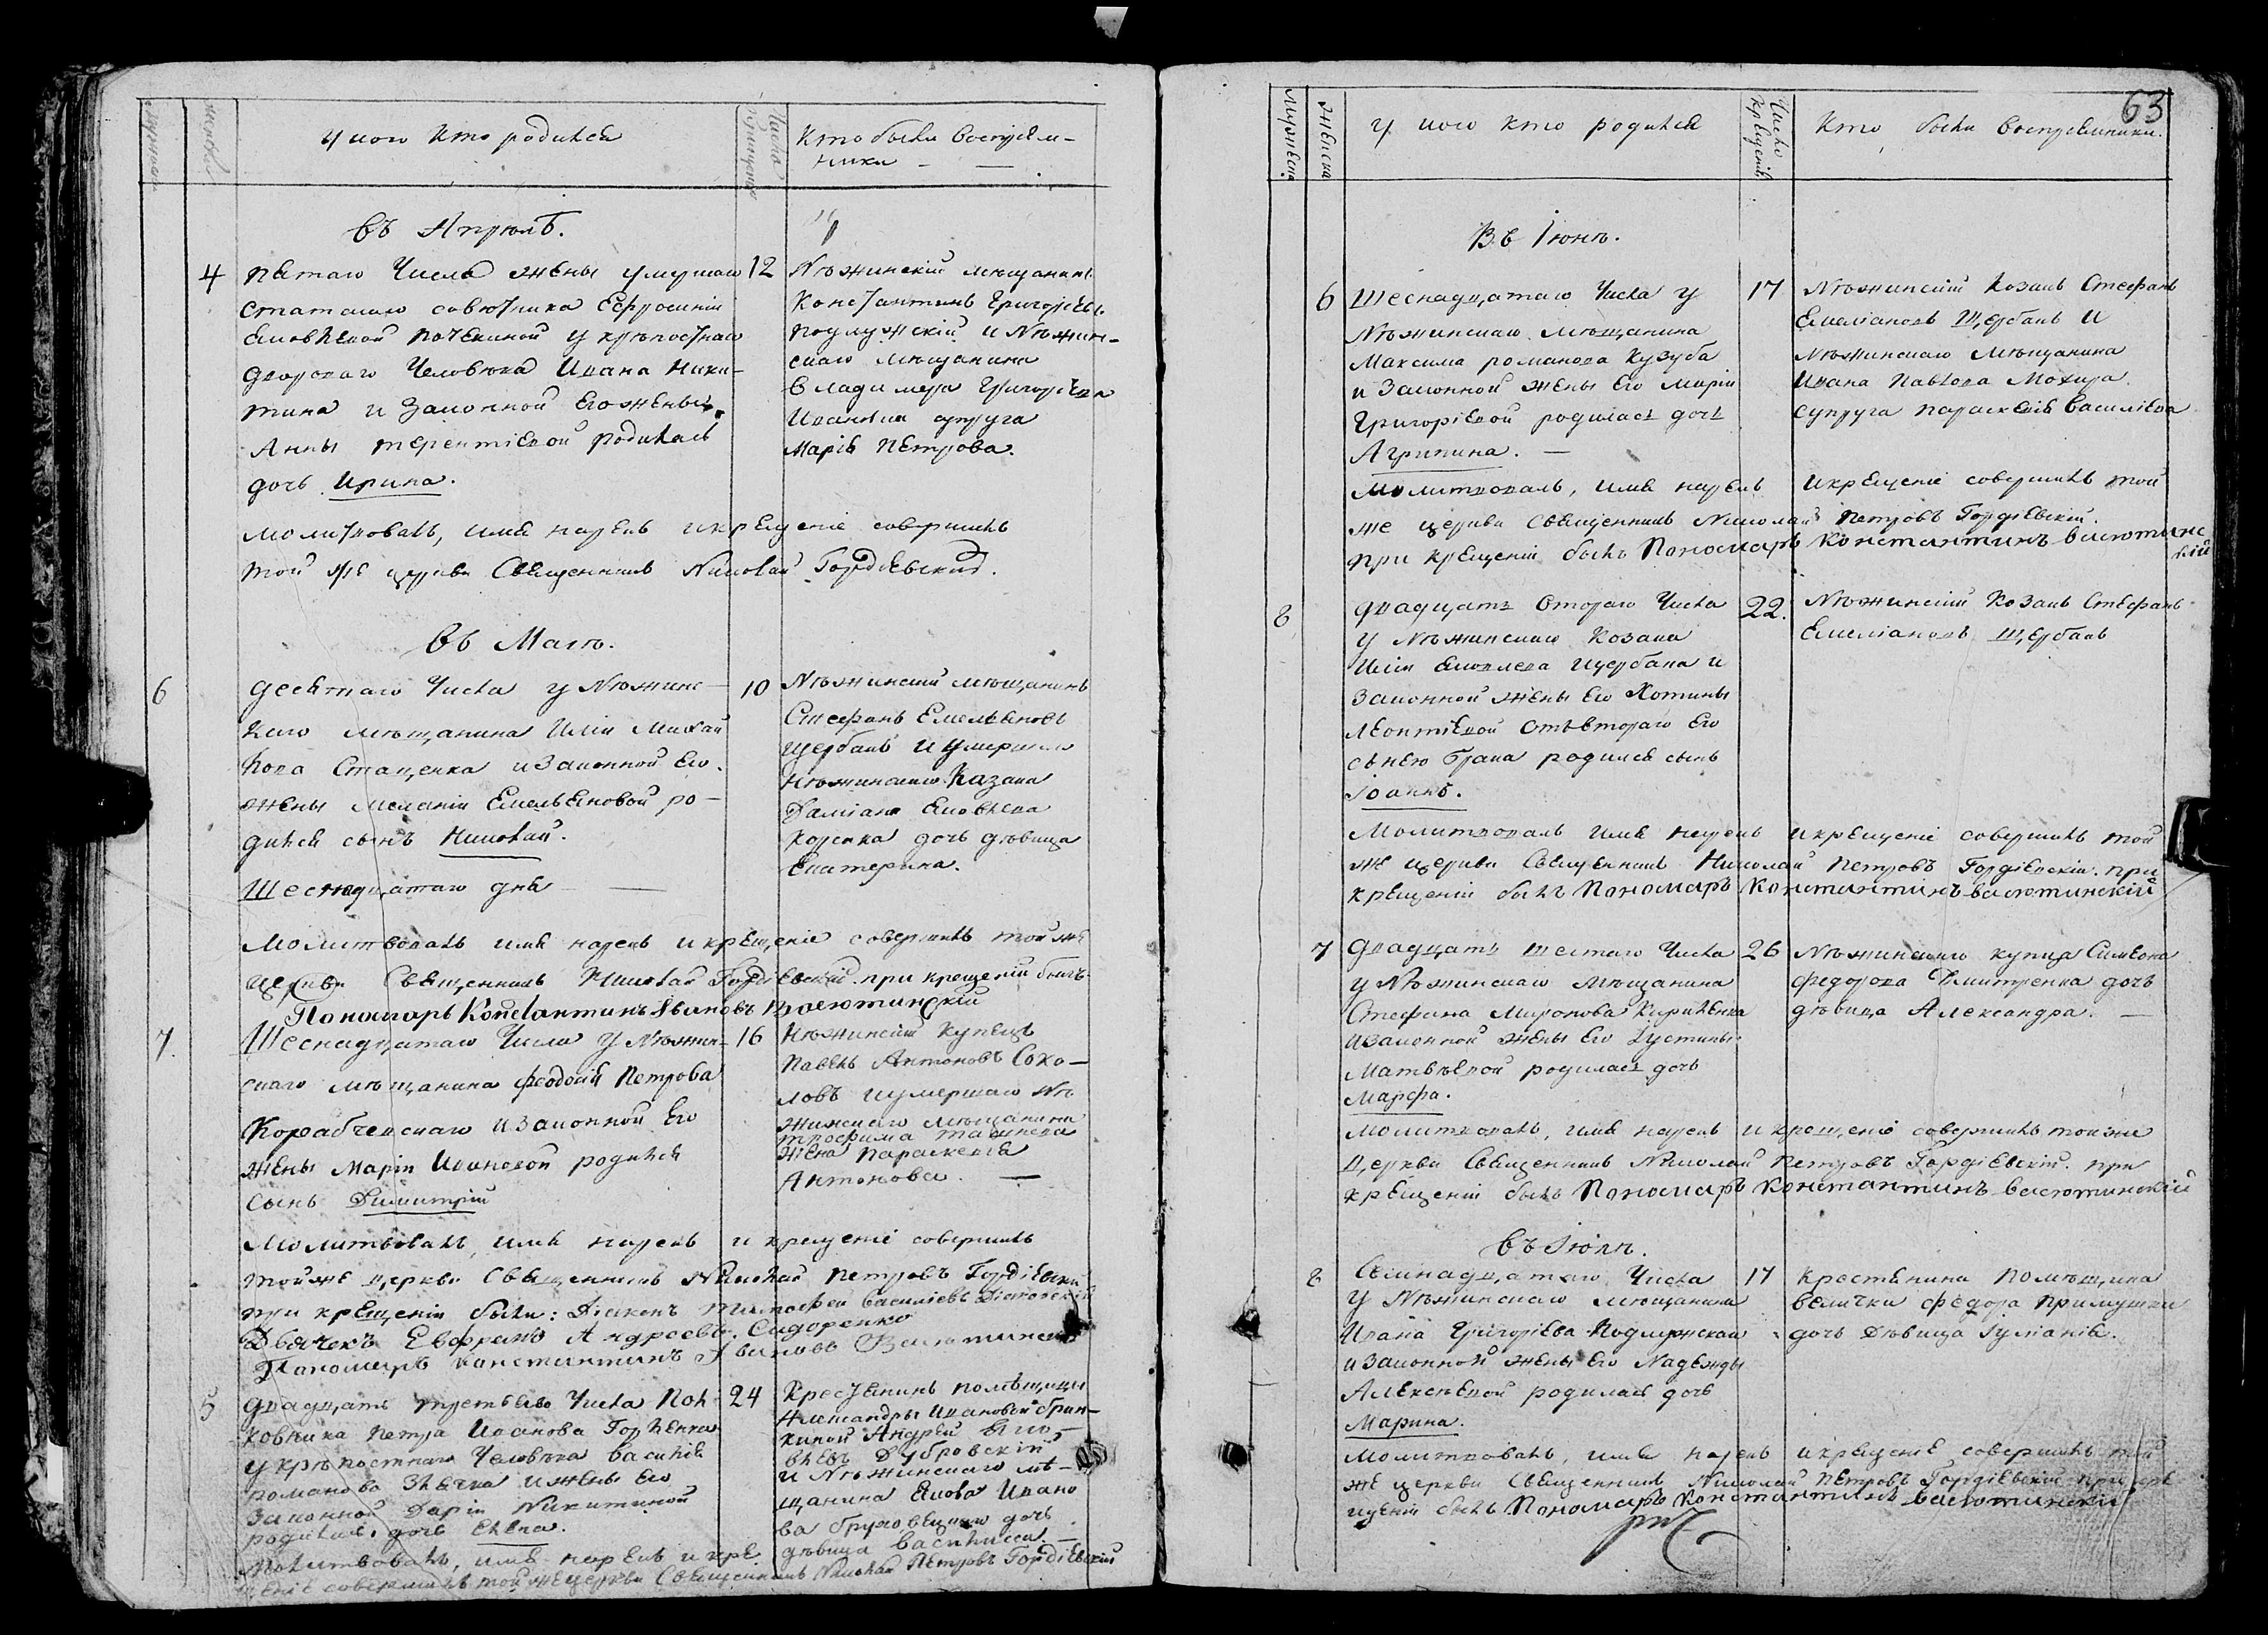 мужеска
женска
у кого кто родился
Число крещения
Кто были восприем-
ники
въ Апрѣлѣ.
4
пятаго Числа жены умершаго
12
статскаго совѣтника Ефросиніи
Яковлевой Почекиной у крѣпостнаго
двороваго Человѣка Ивана Ники-
тина и законной его жены
Анны терентіевой родилась
дочь Ирина.
Нѣжинскій мѣщанинъ
Константинъ Григорьевъ
подлужскій и Нѣжин-
скаго мѣщанина
владимера Григорьева
супруга
Марія Петрова.
молитвовалъ, имя нарекъ и крещеніе совершилъ
той же церкви Священникъ Николай Гордіевскій.
въ Маіѣ.
6
десятаго Числа у Нѣжинс-
10
каго мѣщанина Иліи Михай
лова Стаценка и законной его
жены Меланіи Емельяновой ро-
дился сынъ Николай.
Шеснадцатаго дня
Нѣжинскій мѣщанинъ
Стефанъ Емельяновъ
щербакъ и умершаго
Нѣжинскаго Казака
Даміана Яковлева
дочь дѣвица
Екатерина.
молитвовалъ имя нарекъ и крещеніе совершилъ той же
церкви Священникъ Николай Гордіевскій. при крещеніи былъ
Пономарь Константинъ Ивановъ Васютинскій
7.
Шеснадцатаго Числа у Нѣжин-
16
скаго мѣщанина феодосія Петрова
Корабчевскаго и законной его
жены Маріи Ивановой родился
сынъ Димитрій
Нѣжинскій купецъ
Павелъ Антоновъ Соко-
ловъ и умершаго Нѣ
жинскаго мѣщанина
трофима
жена параскевія
Антонова.
Молитвовалъ, имя нарекъ и крещеніе совершилъ
той же церкви Священникъ Николай Петровъ Гордіевскій
при крещеніи были: Діаконъ тимофей василіевъ
Дьячекъ Евфремъ Андреевъ Сидоренко
Панамарь константинъ Ивановъ Васютинскій
5
двадцать третьяго Числа Пол-
24
ковника Петра Иванова Горленка
у крѣпостнаго Человѣка василія
романова и жены его
законной Даріи Никитиной
родилась дочь Елена.
Крестьянинъ помѣщицы
Александры Ивановой
Андрей Яко-
влевъ Дубровскій
и Нѣжинскаго мѣ-
щанина Якова Ивано
ва дочь
дѣвица василисса.
Молитвовалъ, имя нарекъ и кре
щеніе совершилъ той же церкви Священникъ Николай Петровъ Гордіевскій
63
Мужеска
Женска
у кого кто родился
Число крещенія
Кто были восприемники.
Въ Іюнѣ.
6
Шеснадцатаго Числа у
17
Нѣжинскаго мѣщанина
Максима романова Кузуба
и законной жены его Маріи
Григоріевой родилась дочь
Агрипина.
Нѣжинскій Козакъ Стефанъ
Емеліановъ Щербакъ и
Нѣжинскаго Мѣщанина
Ивана Павлова
супруга параскевія василіева
молитвовалъ, имя нарекъ и крещеніе совершилъ той
же церкви Священникъ Николай Петровъ Гордіевскій.
при крещеніи былъ Пономарь Константинъ васютинс
кій
8
двадцать втораго Числа
22.
у Нѣжинскаго Козака
Иліи Яковлева щербака и
законной жены его Хотины
Леонтіевой отъ втораго его
съ нею брака родился сынъ
Іоаннъ.
Нѣжинскій Козакъ Стефанъ
Емеліановъ щербакъ
Молитвовалъ имя нарекъ и крещеніе совершилъ той
же церкви Священникъ Николай Петровъ Гордіевскій. при
крещеніи былъ Пономарь Константинъ васютинскій
7
двадцать шестаго Числа
26
у Нѣжинскаго Мѣщанина
Стефана Миронова Кириленка
и законной жены его Іустины
Матвѣевой родилась дочь
Марфа.
Нѣжинскаго купца Симеона
федорова Дмитренка дочь
дѣвица Александра.
молитвовалъ, имя нарекъ и крещеніе совершилъ той же
церкви Священникъ Николай Петровъ Гордіевскій. при
крещеніи былъ Пономарь Константинъ васютинскій
въ Іюлѣ.
8
Семнадцатаго Числа
17
у Нѣжинскаго мѣщанина
Ивана Григоріева Подлужскаго
и законной жены его Надежды
Алексѣевой родилась дочь
Марина.
крестьянина помѣщика
велички федора
дочь дѣвица Іуліанія.
молитвовалъ, имя нарекъ и крещеніе совершилъ той
же церкви Священникъ Николай Петровъ Гордіевскій при кре
щеніи былъ Пономарь Константинъ васютинскій